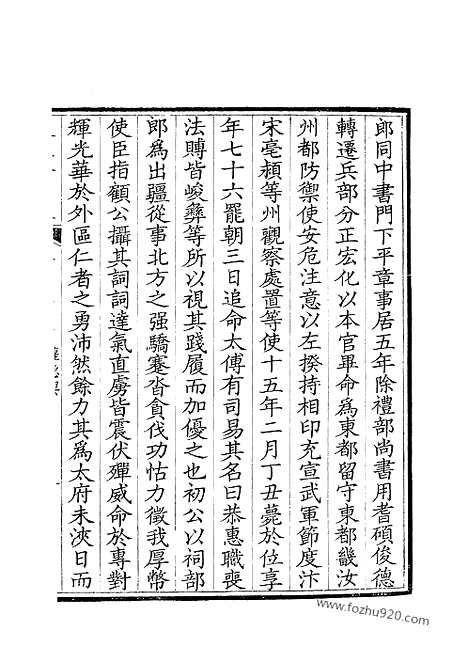 郎同中書門下平章事居五年除禮部尚書用耆碩俊德
轉遷兵部分正宏化以本官畢命為東都留守東都畿汝
州都防禦使安危注意以左揆持相印充宣武軍節度汴
宋亳潁等州觀察處置等使十五年二月丁丑薨於位享
年七十六罷朝三日追命太傅有司易其名曰恭惠職喪
法賻皆峻彝等所以視其踐履而加優之也初公以祠部
郎為出疆從事北方之强驕蹇沓貪伐功怙力徵我厚幣
使臣指顧公攝其詞詞達氣直虜皆震伏殫威命於專對
輝光華於外區仁者之勇沛然餘力其為太府未浹日而
www.fozhu920.com